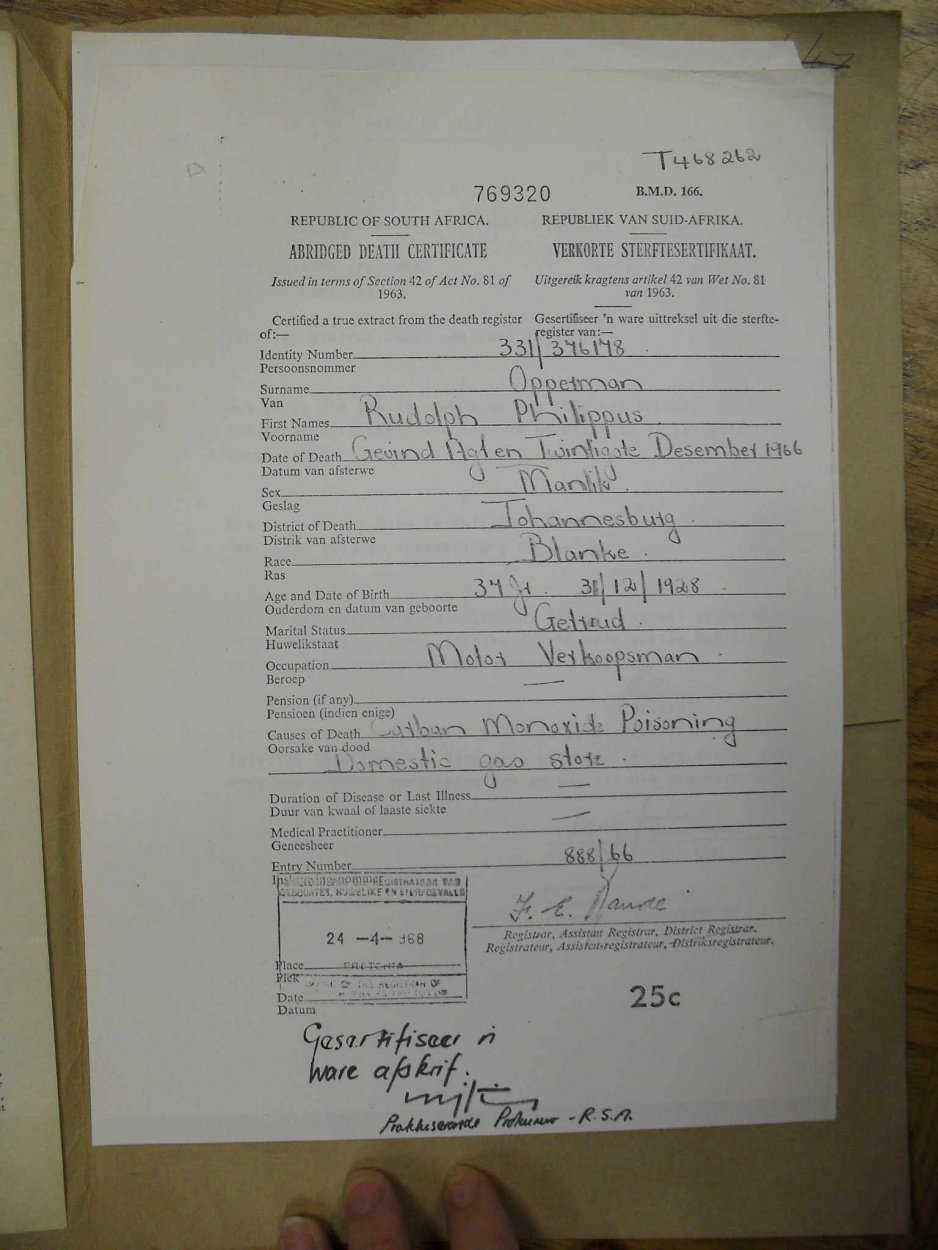 T468262
769320 B.M.D. 166.
REPUBLIC OF SOUTH AFRICA. REPUBLIEK VAN SUID-AFRIKA.
ABRIDGED DEATH CERTIFICATE VERKORTE STERFTESERTIFIKAAT.
Issued in terms of Section 42 of Act No. 81 of 1963. Uitgereik kragtens artikel 42 van Wet No. 81 van 1963.
Certified a true extract from the death register of:— Gesertifiseer 'n ware uittreksel uit die sterfte-register van:—
Identity Number 331/376178
Persoonsnommer
Surname Opperman
Van
First Names Rudolph Philippus
Voorname
Date of Death Gevind Agt en Twintigste Desember 1966
Datum van afsterwe
Sex Manlik
Geslag
District of Death Johannesburg
Distrik van afsterwe
Race Blanke
Ras
Age and Date of Birth 37 Jr. 31/12/1928
Ouderdom en datum van geboorte
Marital Status Getroud
Huwelikstaat
Occupation Motor Verkoopsman
Beroep
Pension (if any)
Pensioen (indien enige)
Causes of Death Carbon Monoxide Poisoning
Oorsake van dood
Domestic gas stove
Duration of Disease or Last Illness
Duur van kwaal of laaste siekte
Medical Practitioner
Geneesheer
Entry Number 888/66
GEBOORTES, HUWELIKE EN STERFGEVALLE
24 -4- 968
Place PRETORIA
Plek
OFFICE OF THE REGISTRAR OF
Date
Datum
F. E.
Registrar, Assistant Registrar, District Registrar.
Registrateur, Assistent-registrateur, Distriksregistrateur.
25c
Gesertifiseer 'n
ware afskrif.
Praktiserende Prokureur - R.S.A.